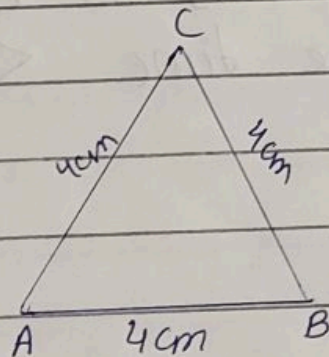 C
4cm
4cm
A
4cm
B